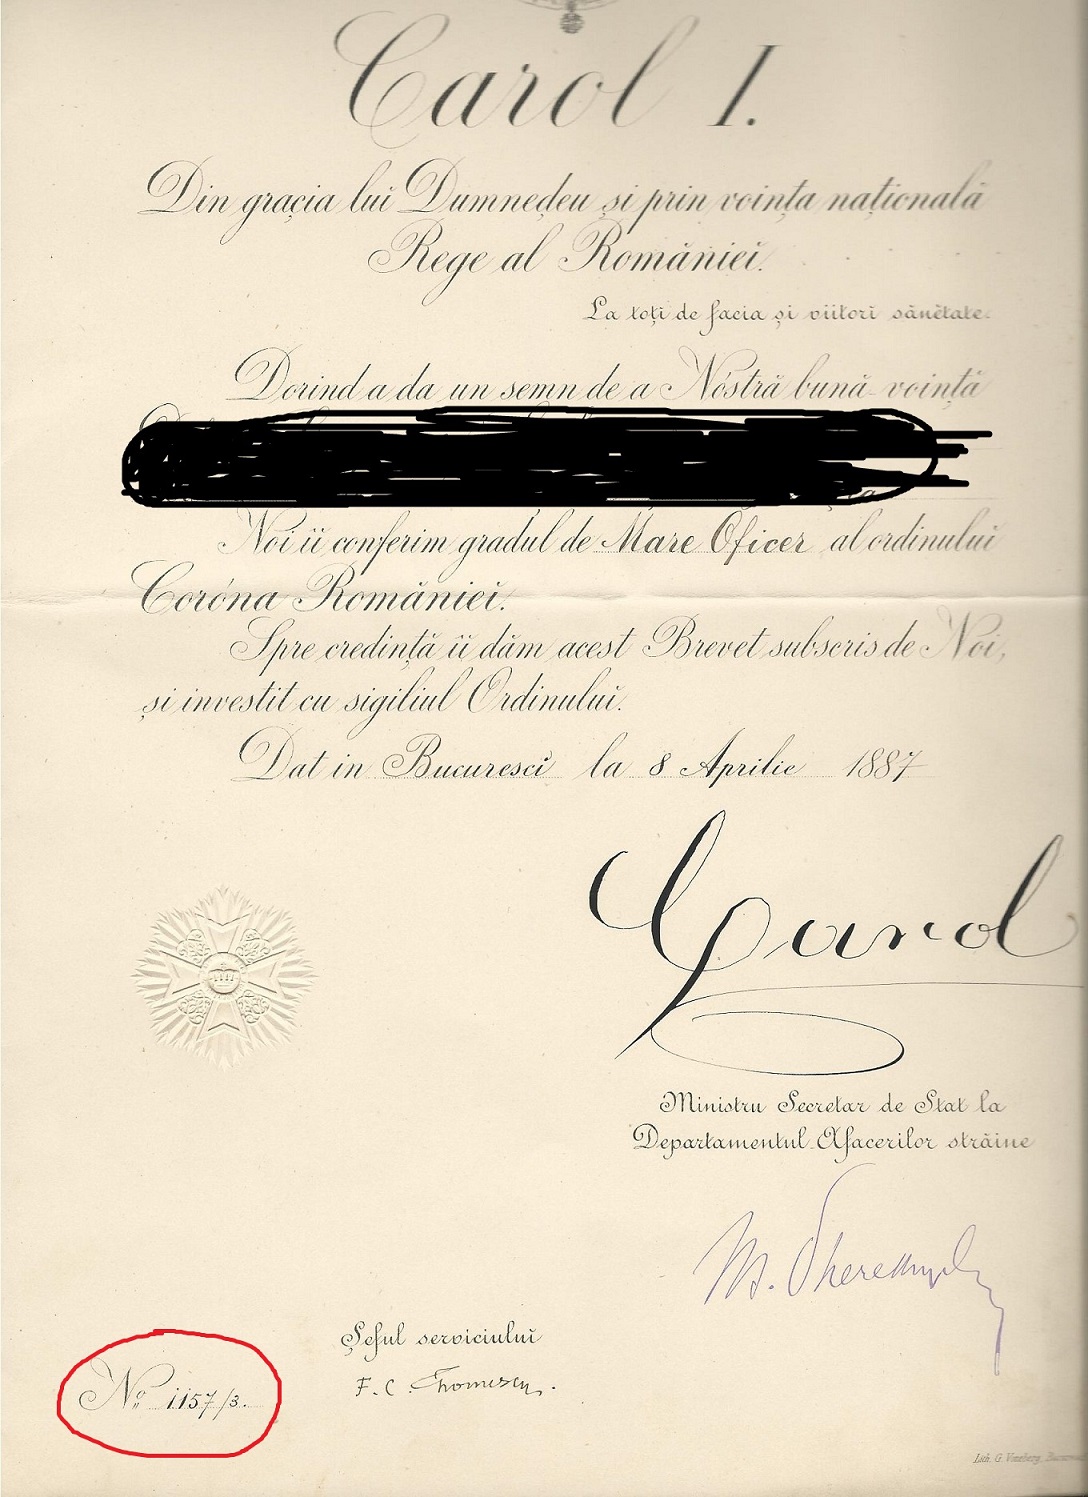 Carol I.
Din gracia lui Dumnedeu și prin voința națională
Rege al României.
La toți de facia și viitori sănĕtate.
Dorind a da un semn de a Nóstră bună-voință
Noi ii conferim gradul de Mare Oficer al ordinului
Coróna României.
Spre credință ii dăm acest Brevet subscris de Noi,
și investit cu sigiliul Ordinului.
Dat in Bucuresci la 8 Aprilie 1887
Carol
Ministru Secretar de Stat la
Departamentul Afacerilor străine
M.
Șeful serviciului
F. C.
No 1157/3.
Lith. G.